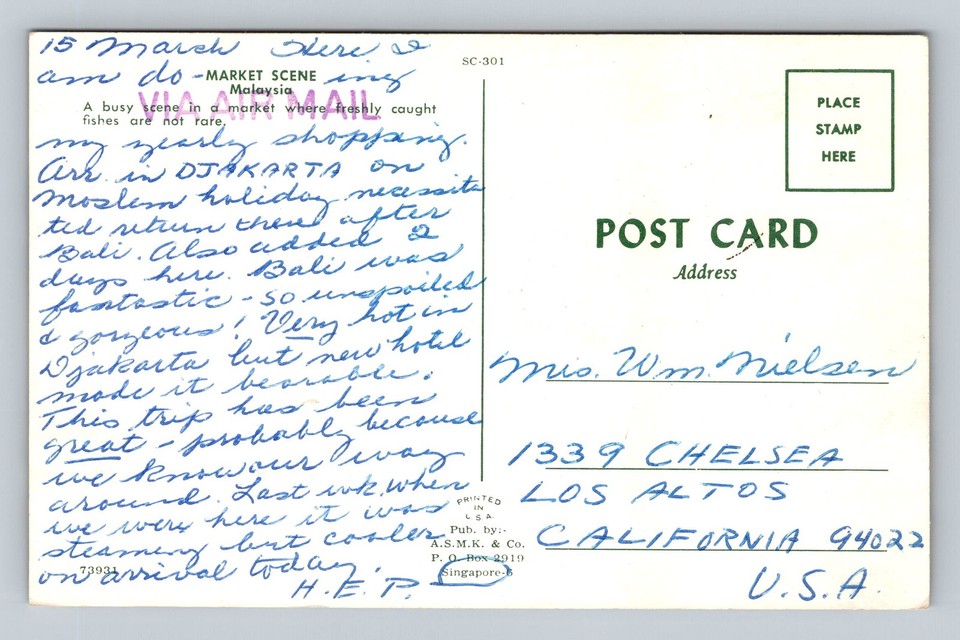 15 March Here I
am do-ing
MARKET SCENE
Malaysia
VIA AIR MAIL
A busy scene in a market where freshly caught
fishes are not rare.
my yearly shopping.
Arr. in DJAKARTA on
Moslem holiday necessita
ted return there after
Bali. Also added 2
days here. Bali was
fantastic - so unspoiled
& gorgeous! Very hot in
Djakarta but new hotel
made it bearable.
This trip has been
great - probably because
we know our way
around. Last wk. when
we were here it was
steaming but cooler
on arrival today.
H.E.P.
73931
SC-301
PRINTED
IN
U.S.A.
Pub. by:-
A.S.M.K. & Co.
P. O. Box 2919
Singapore-6
PLACE
STAMP
HERE
POST CARD
Address
Mrs. Wm. Nielsen
1339 CHELSEA
LOS ALTOS
CALIFORNIA 94022
U.S.A.